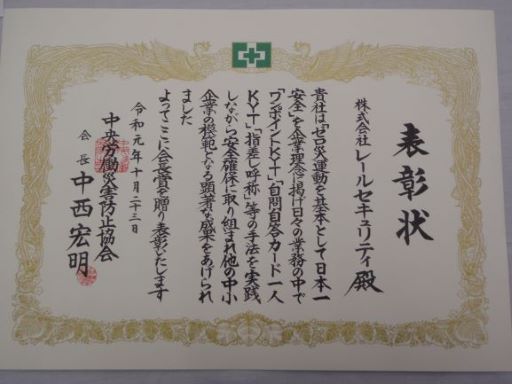 表彰状
株式会社レールセキュリティ殿
貴社は「ゼロ災運動を基本として日本一
安全」を企業理念に掲げ日々の業務の中で
「ワンポイントKYT」「自問自答カード一人
KYT」「指差し呼称」等の手法を実践
しながら安全確保に取り組まれ他の中小
企業の模範となる顕著な成果をあげられ
ました
よってここに会長賞を贈り表彰いたします
令和元年十月二十三日
中央労働災害防止協会
会長 中西宏明